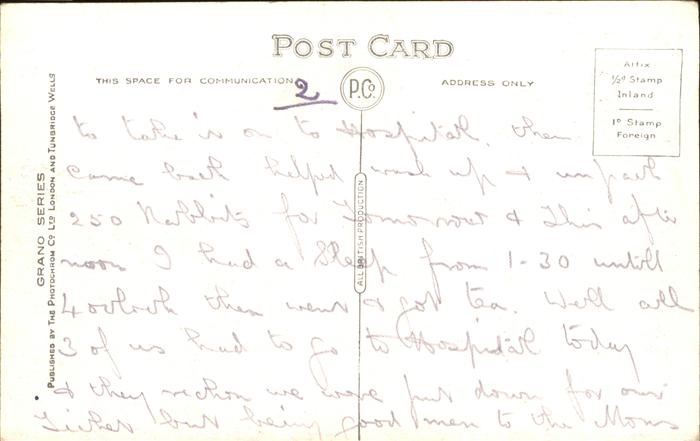 POST CARD
THIS SPACE FOR COMMUNICATION
2
P.Co
ADDRESS ONLY
Affix
½d Stamp
Inland
1d Stamp
Foreign
GRANO SERIES
PUBLISHED BY THE PHOTOCHROM CO LTD LONDON AND TUNBRIDGE WELLS
ALL BRITISH PRODUCTION
to take is on to Hospital. then
came back helped wash up & unpack
250 Rabbits for Tomorrow & This after
noon I had a Sleep from 1-30 untill
4 oclock then went & got tea. Well all
3 of us had to go to Hospital today
& they reckon we were put down for our
Ticket but being good men to the Mess